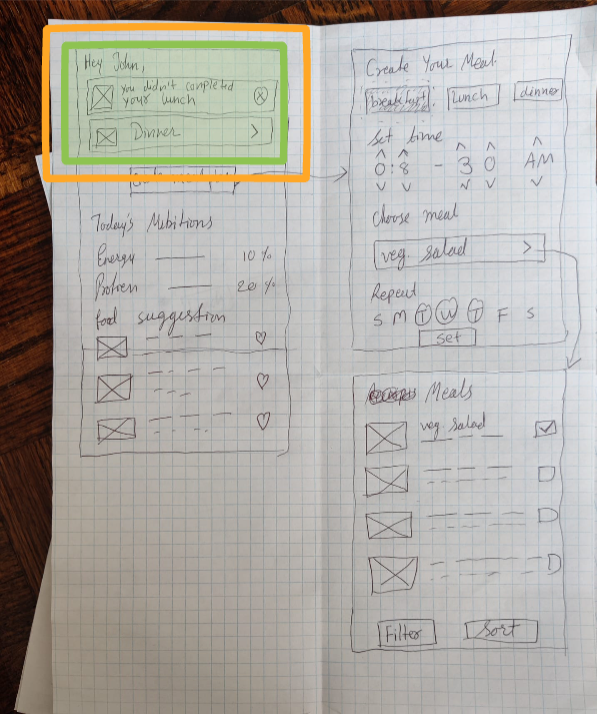 Hey John,
You didn't completed
your lunch
Dinner
Today's Nutitions
Energy 10 %
Protien 20 %
food suggestion
Create Your Meal
breakfast lunch dinner
Set time
08 - 30 AM
Choose meal
veg. salad
Repeat
S M T W T F S
Set
Meals
veg salad
Filter Sort